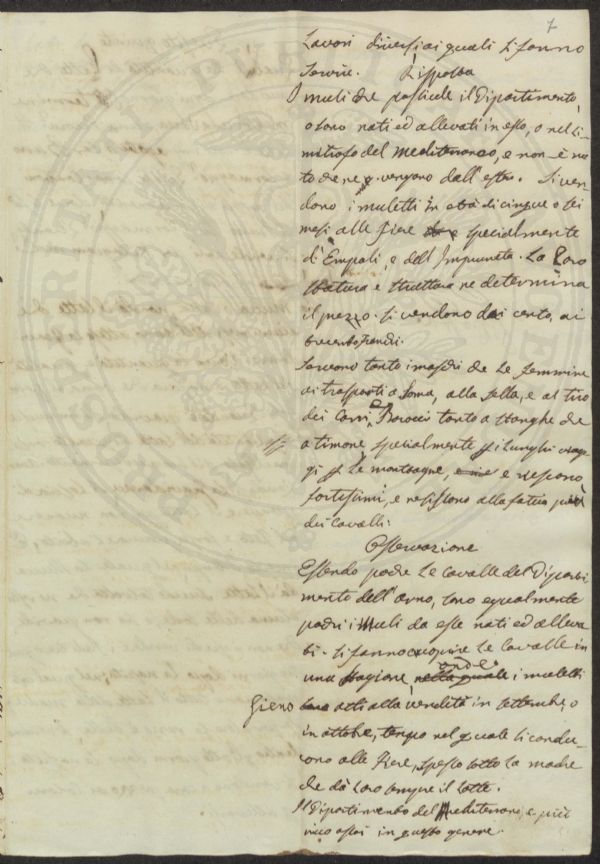 7
Lavori diversi ai quali si fanno
Servire. Risposta
I muli che possiede il Dipartimento,
o sono nati ed allevati in esso, o nel li=
mitrofo del Mediterraneo, e non v'è na
to che ne vengano dall'estero. Si ven-
dono i muletti in età di cinque o sei
mesi alle fiere specialmente
d'Empoli, e dell'Impruneta. La Loro
Statura e struttura ne determina
il prezzo. Si vendono dai cento, ai
trecento franchi.
Servono tanto i maschi che Le femmine
ai trasporti a Soma, alla sella, e al tiro
dei Carri e Barocci tanto a stanghe che
a timone specialmente pei lunghi viag-
gi p. Le montagne, e riescono
fortissimi, e resistono alla fatica più
dei Cavalli.
Osservazione
Essendo poche Le Cavalle del Diparti
mento dell'Arno, sono egualmente
pochi i Muli da esse nati ed alleva
ti. Si fanno coprire Le Cavalle in
una stagione, onde i muletti
sieno atti alla vendita in settembre, o
in ottobre, tempo nel quale si condu-
cono alle Fiere, spesso sotto La madre
che dà Loro sempre il Latte.
Il Dipartimento del Mediterraneo, e più
ricco assai in questo genere.